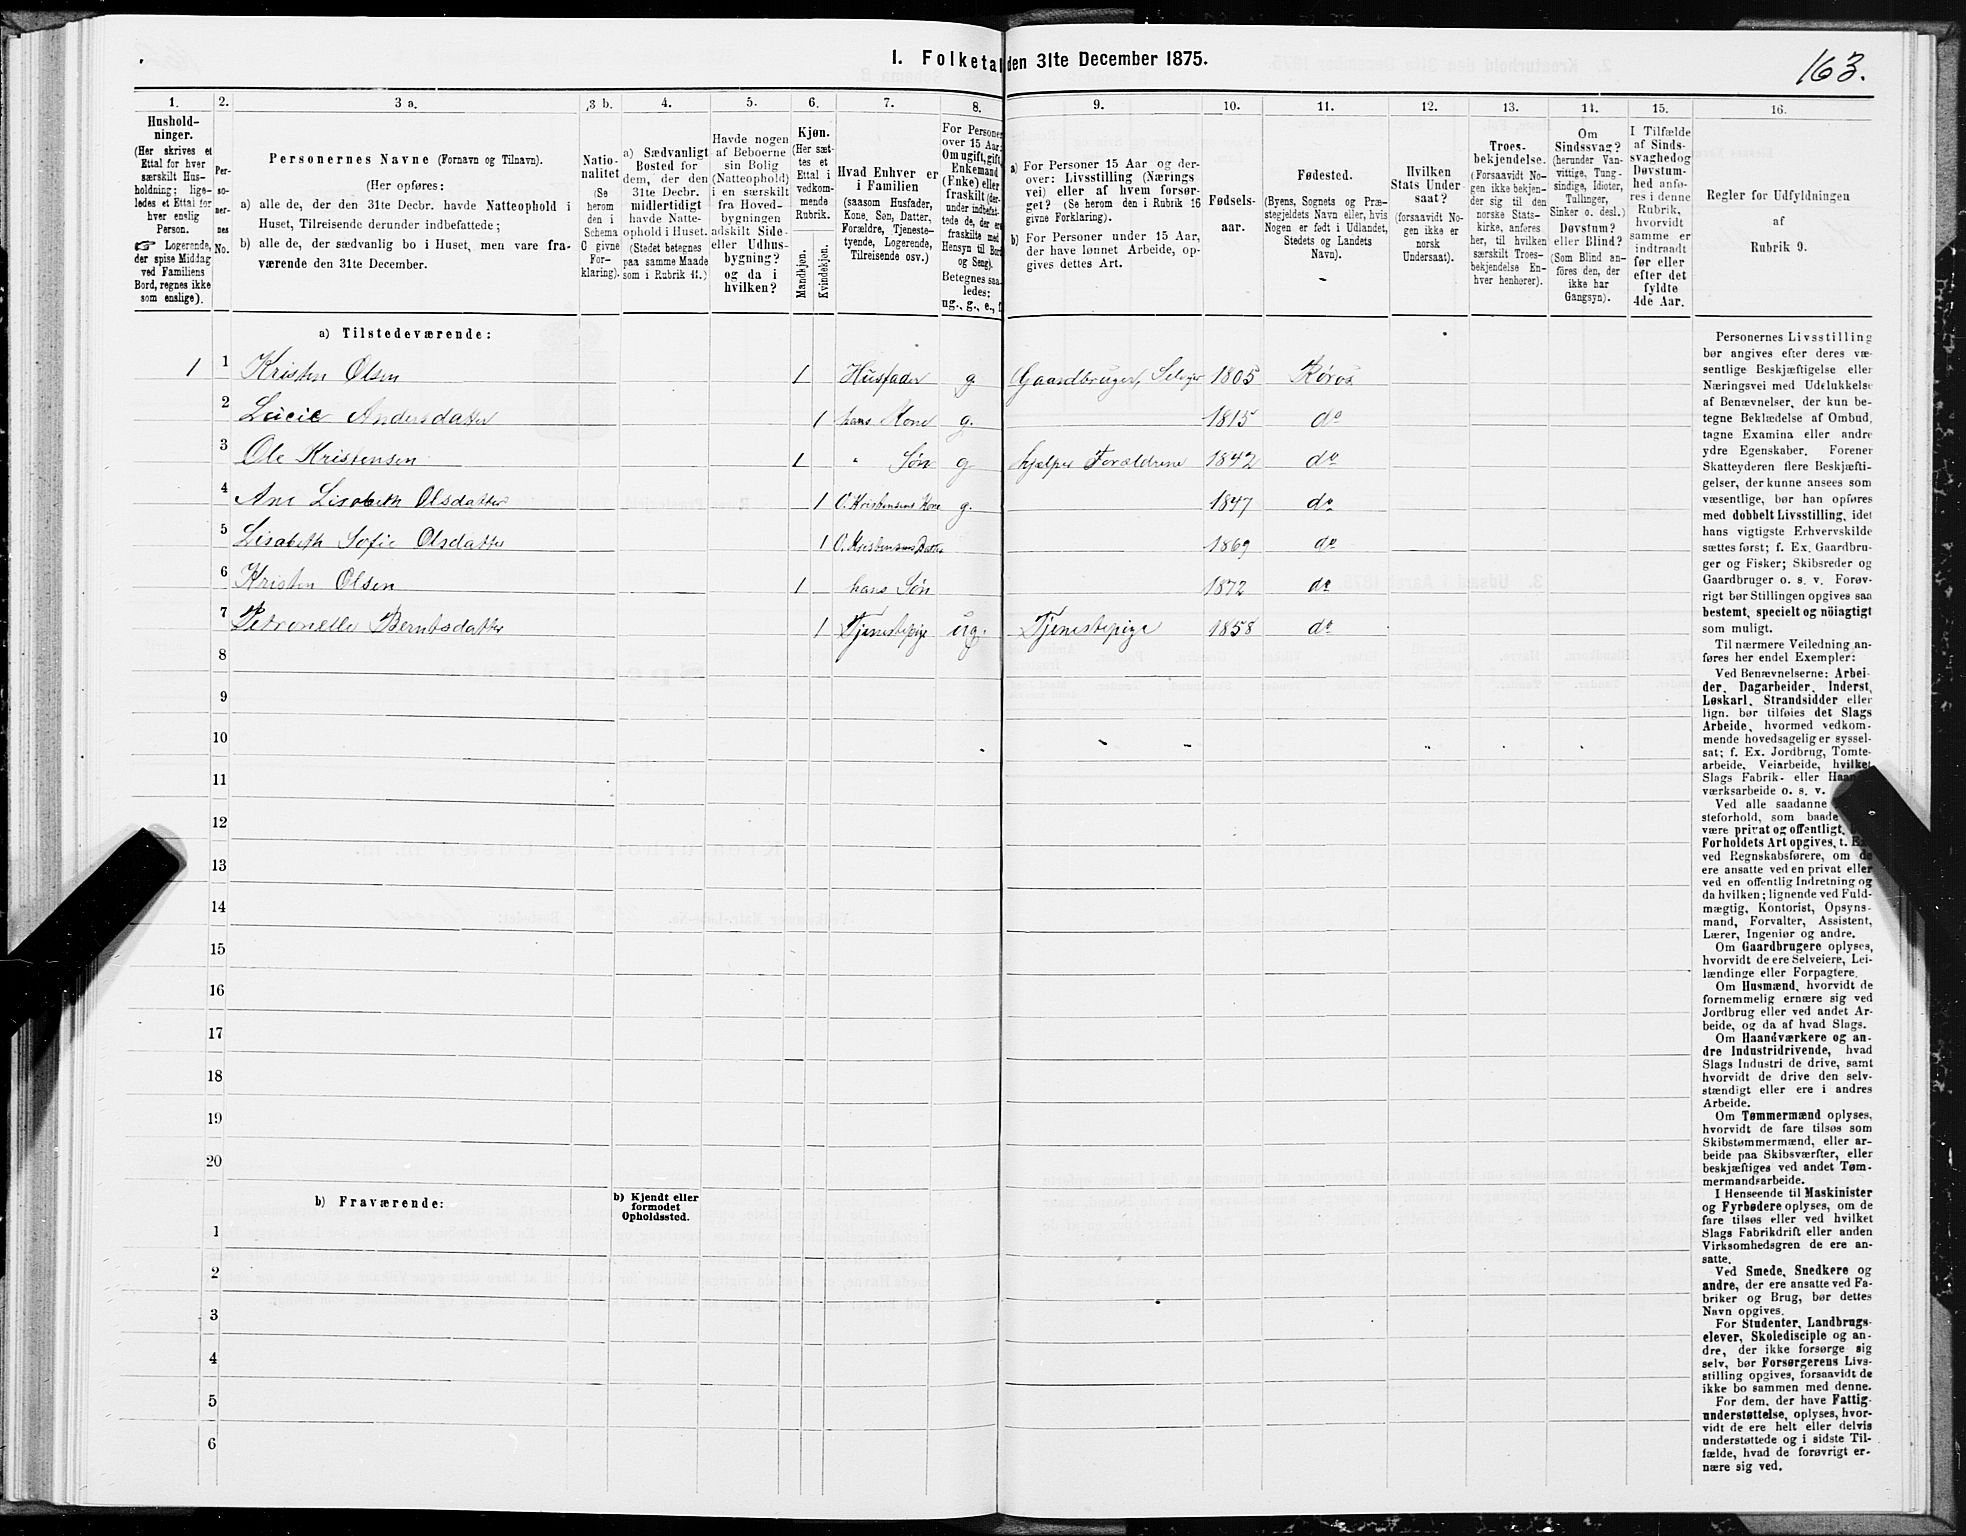 163.
I. Folketal den 31te December 1875.
1.
2.
3 a.
3 b.
4.
5.
6.
7.
8.
9.
10.
11.
12.
13.
14.
15.
16.
Hushold-
ninger.
(Her skrives et
Ettal for hver
særskilt Hus-
holdning; lige-
ledes et Ettal for
hver enslig
Person.
☞ Logerende,
der spise Middag
ved Familiens
Bord, regnes ikke
som enslige).
Per-
so-
ner-
nes
No.
Personernes Navne (Fornavn og Tilnavn).
(Her opføres:
a) alle de, der den 31te Decbr. havde Natteophold i
Huset, Tilreisende derunder indbefattede;
b) alle de, der sædvanlig bo i Huset, men vare fra-
værende den 31te December.
Natio-
nalitet
(Se
herom
den i
Schema
C givne
For-
klaring).
a) Sædvanligt
Bosted for
dem, der den
31te Decbr.
midlertidigt
havde Natte-
ophold i Huset.
(Stedet betegnes
paa samme Maade
som i Rubrik 11.)
Havde nogen
af Beboerne
sin Bolig
(Natteophold)
i en særskilt
fra Hoved-
bygningen
adskilt Side-
eller Udhus-
bygning?
og da i
hvilken?
Kjøn.
(Her sæt-
tes et
Ettal i
vedkom-
mende
Rubrik.
Mandkjøn.
Kvindekjøn.
Hvad Enhver er
i Familien
(saasom Husfader,
Kone, Søn, Datter,
Forældre, Tjeneste-
tyende, Logerende,
Tilreisende osv.)
For Personer
over 15 Aar:
Om ugift, gift,
Enkemand
(Enke) eller
fraskilt (der-
under indbefat-
tede de, der ere
fraskilte med
Hensyn til Bord
og Seng).
Betegnes saa-
ledes:
ug., g., e., f.
a) For Personer 15 Aar og der-
over: Livsstilling (Nærings
vei) eller af hvem forsør-
get? (Se herom den i Rubrik 16
givne Forklaring).
b) For Personer under 15 Aar,
der have lønnet Arbeide, op-
gives dettes Art.
Fødsels-
aar.
Fødested.
(Byens, Sognets og Præ-
stegjeldets Navn eller, hvis
Nogen er født i Udlandet,
Stedets og Landets
Navn).
Hvilken
Stats Under-
saat?
(forsaavidt No-
gen ikke er
norsk
Undersaat).
Troes-
bekjendelse.
(Forsaavidt No-
gen ikke bekjen-
der sig til den
norske Stats-
kirke, anføres
her, til hvilken
særskilt Troes-
bekjendelse En-
hver henhører).
Om
Sindssvag?
(herunder Van-
vittige, Tung-
sindige, Idioter,
Tullinger,
Sinker o. desl.)
Døvstum?
eller Blind?
(Som Blind an-
føres den, der
ikke har
Gangsyn).
I Tilfælde
af Sinds-
svaghed og
Døvstum-
hed anfø-
res i denne
Rubrik,
hvorvidt
samme er
indtraadt
før eller
efter det
fyldte
4de Aar.
Regler for Udfyldningen
af
Rubrik 9.
a) Tilstedeværende:
1 1 Kristen Olsen 1 Husfader g. Gaardbruger, Selveier 1805 Røros
2 Lucie Andersdatter 1 hans Kone g. 1815 do
3 Ole Kristensen 1 " Søn g hjælper Forældrene 1842 do
4 Ane Lisabeth Olsdatter 1 O. Kristensens Kone g. 1847 do
5 Lisabeth Sofie Olsdatter 1 O. Kristensens Datter 1869 do
6 Kristen Olsen 1 hans Søn 1872 do
7 Petronelle Berntsdatter 1 Tjenestepige ug. Tjenestepige 1858 do
8
9
10
11
12
13
14
15
16
17
18
19
20
b) Fraværende:
b) Kjendt eller
formodet
Opholdssted.
1
2
3
4
5
6
Personernes Livsstilling
bør angives efter deres væ-
sentlige Beskjæftigelse eller
Næringsvei med Udelukkelse
af Benævnelser, der kun be-
tegne Beklædelse af Ombud,
tagne Examina eller andre
ydre Egenskaber. Forener
Skatteyderen flere Beskjæfti-
gelser, der kunne ansees som
væsentlige, bør han opføres
med dobbelt Livsstilling, idet
hans vigtigste Erhvervskilde
sættes først; f. Ex. Gaardbru-
ger og Fisker; Skibsreder og
Gaardbruger o. s. v. Forøv-
rigt bør Stillingen opgives saa
bestemt, specielt og nöiagtigt
som muligt.
Til nærmere Veiledning an-
føres her endel Exempler:
Ved Benævnelserne: Arbei-
der, Dagarbeider, Inderst,
Løskarl, Strandsidder eller
lign. bør tilføies det Slags
Arbeide, hvormed vedkom-
mende hovedsagelig er syssel-
sat; f. Ex. Jordbrug, Tomte-
arbeide, Veiarbeide, hvilket
Slags Fabrik- eller Haand-
værksarbeide o. s. v.
Ved alle saadanne
steforhold, som baade
være privat og offentligt,
Forholdets Art opgives, t. Ex.
ved Regnskabsførere, om de
ere ansatte ved en privat eller
ved en offentlig Indretning og
da hvilken; lignende ved Fuld-
mægtig, Kontorist, Opsyns-
mand, Forvalter, Assistent,
Lærer, Ingeniør og andre.
Om Gaardbrugere oplyses,
hvorvidt de ere Selveiere, Lei-
lændinge eller Forpagtere.
Om Husmænd, hvorvidt de
fornemmelig ernære sig ved
Jordbrug eller ved andet Ar-
beide, og da af hvad Slags.
Om Haandværkere og an-
dre Industridrivende, hvad
Slags Industri de drive, samt
hvorvidt de drive den selv-
stændigt eller ere i andres
Arbeide.
Om Tømmermænd oplyses,
hvorvidt de fare tilsøs som
Skibstømmermænd, eller ar-
beide paa Skibsværfter, eller
beskjæftiges ved andet Tøm-
mermandsarbeide.
I Henseende til Maskinister
og Fyrbødere oplyses, om de
fare tilsøs eller ved hvilket
Slags Fabrikdrift eller anden
Virksomhedsgren de ere an-
satte.
Ved Smede, Snedkere og
andre, der ere ansatte ved Fa-
briker og Brug, bør dettes
Navn opgives.
For Studenter, Landbrugs-
elever, Skoledisciple og an-
dre, der ikke forsørge sig
selv, bør Forsørgerens Livs-
stilling opgives, forsaavidt de
ikke bo sammen med denne.
For dem, der have Fattig-
understøttelse, oplyses, hvor-
vidt de ere helt eller delvis
understøttede og i sidste Til-
fælde, hvad de forøvrigt er-
nære sig ved.